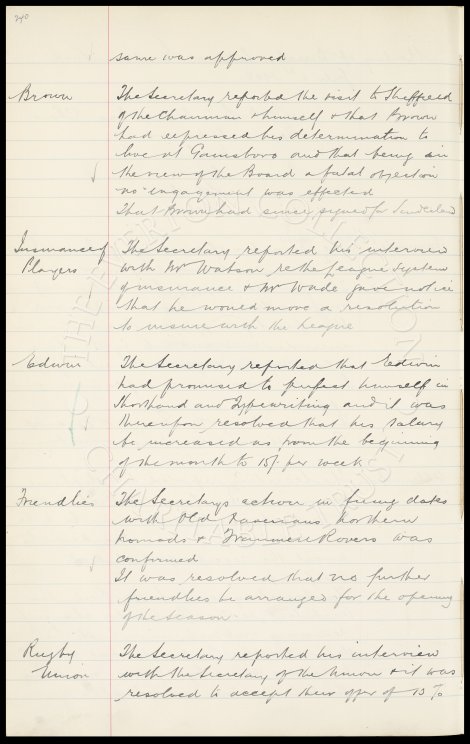 240
same was approved
Brown
The Secretary reported the visit to Sheffield
of the Chairman & himself & that Brown
had expressed his determination to
live at Gainsboro and that being in
the view of the Board a fatal objection
no engagement was effected
That Brown had since signed for Sunderland
Insurance of
Players
The Secretary reported his interview
with Mr Watson re the League system
of insurance & Mr Wade gave notice
that he would move a resolution
to insure with the League
Edwin
The Secretary reported that Edwin
had promised to perfect himself in
Shorthand and Typewriting and it was
thereupon resolved that his salary
be increased as from the beginning
of the month to 15/- per week
Friendlies
The Secretarys action in fixing dates
with Old Xaverians Northern
Nomads & Tranmere Rovers was
confirmed
It was resolved that no further
friendlies be arranged for the opening
of the season
Rugby
Union
The Secretary reported his interview
with the Secretary of the Union & it was
resolved to accept their offer of 15%
THE EVERTON COLLECTION